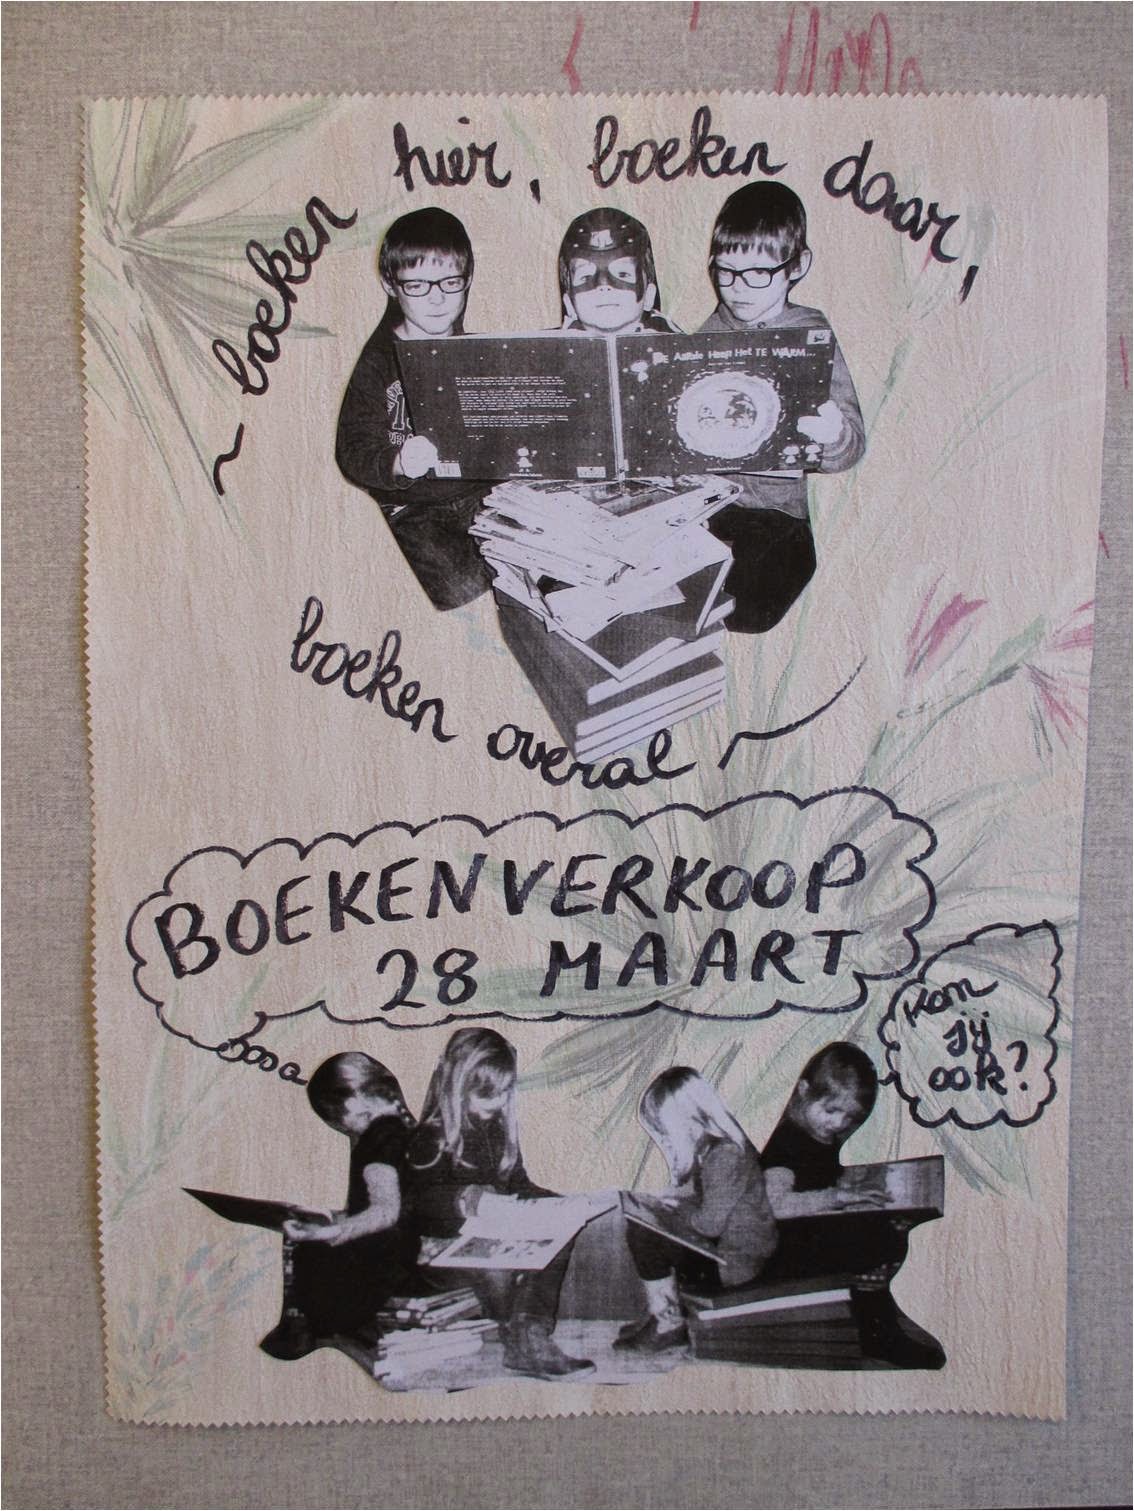 ~ boeken hier, boeken daar,
DE AARDE HEEFT HET TE WARM...
boeken overal ~
BOEKENVERKOOP
28 MAART
Kom
jij
ook?